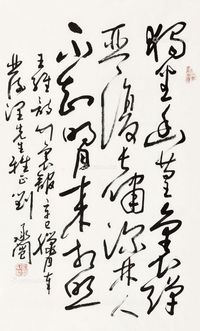 獨坐幽篁裏彈
琴復長嘯深林人
不知明月來相照
王維詩竹裏館辛巳臘月奉
先生雅正劉